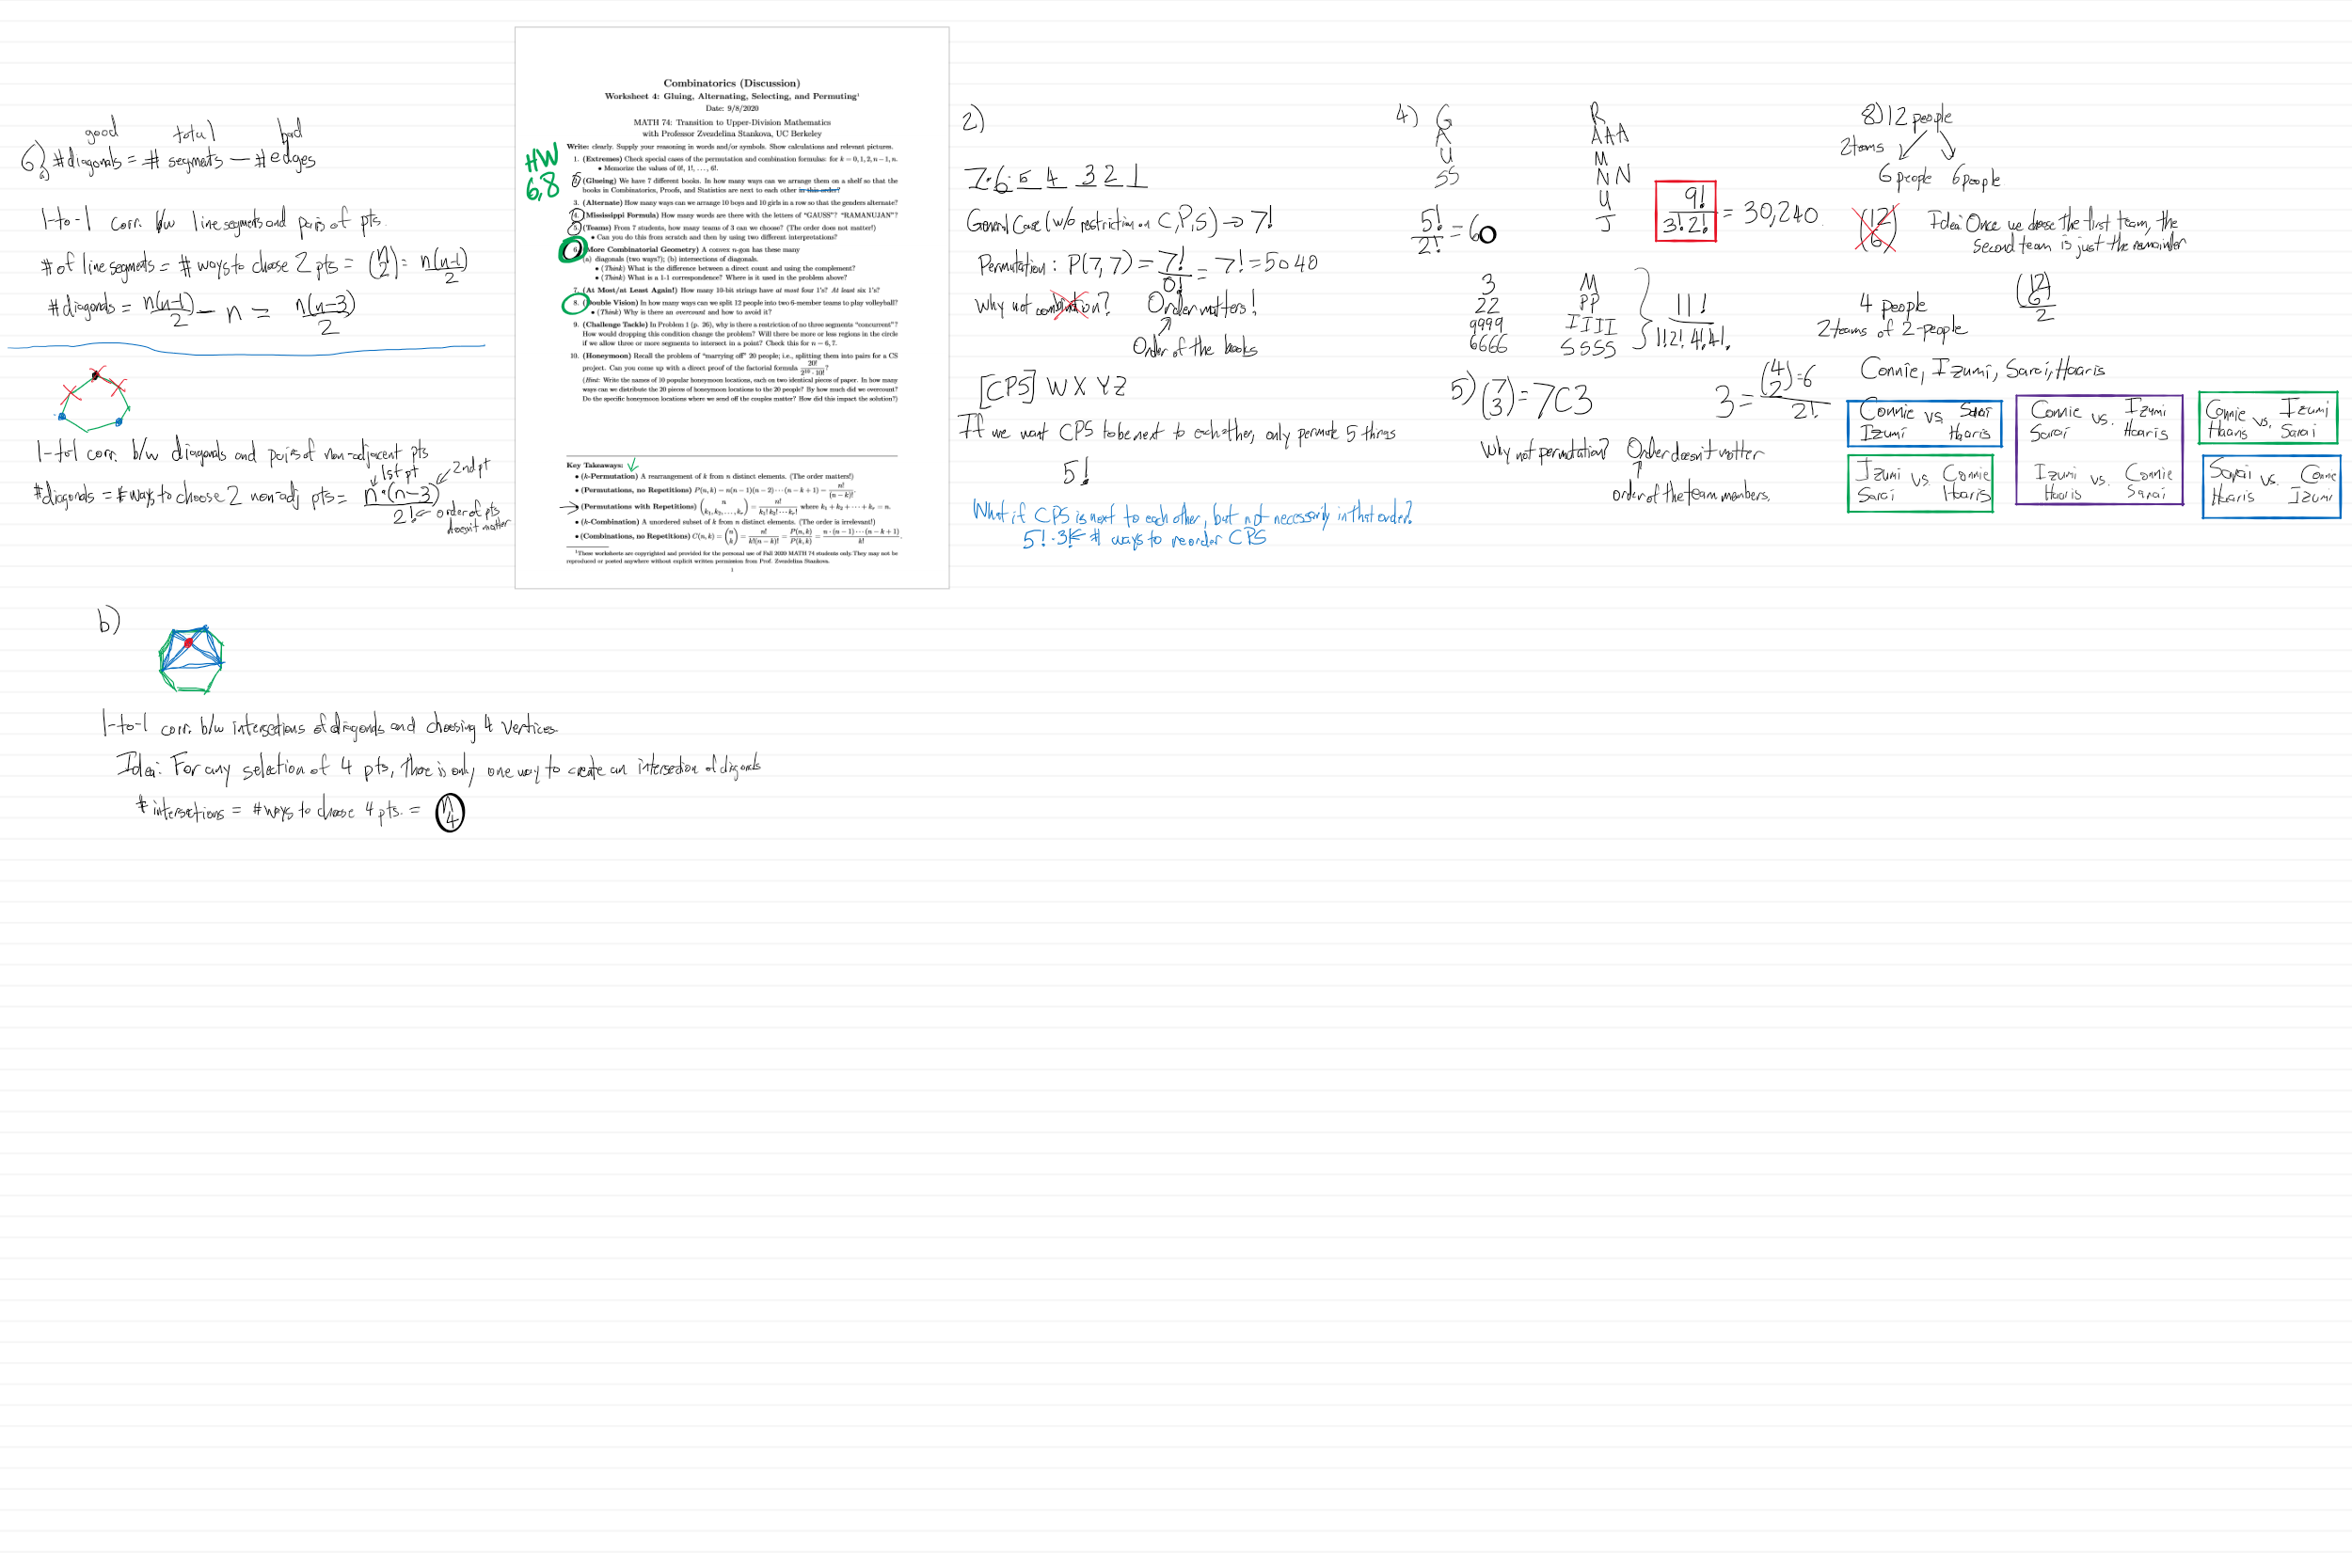 6)
a)
good total bad
#diagonals = # segments − # edges
1-to-1 corr. b/w line segments and pairs of pts.
# of line segments = # ways to choose 2 pts = (n 2) = n(n-1)/2
#diagonals = n(n-1)/2 − n = n(n-3)/2
1-to-1 corr. b/w diagonals and pairs of non-adjacent pts
1st pt 2nd pt
#diagonals = # ways to choose 2 non-adj pts = n·(n-3)/2! ← order of pts
doesn't matter
b)
1-to-1 corr. b/w intersections of diagonals and choosing 4 vertices.
Idea: For any selection of 4 pts, there is only one way to create an intersection of digonals
# intersections = # ways to choose 4 pts. = (n 4)
HW
6,8
Combinatorics (Discussion)
Worksheet 4: Gluing, Alternating, Selecting, and Permuting¹
Date: 9/8/2020
MATH 74: Transition to Upper-Division Mathematics
with Professor Zvezdelina Stankova, UC Berkeley
Write: clearly. Supply your reasoning in words and/or symbols. Show calculations and relevant pictures.
1. (Extremes) Check special cases of the permutation and combination formulas: for k = 0, 1, 2, n − 1, n.
• Memorize the values of 0!, 1!, ..., 6!.
2. (Glueing) We have 7 different books. In how many ways can we arrange them on a shelf so that the
books in Combinatorics, Proofs, and Statistics are next to each other in this order?
3. (Alternate) How many ways can we arrange 10 boys and 10 girls in a row so that the genders alternate?
4. (Mississippi Formula) How many words are there with the letters of "GAUSS"? "RAMANUJAN"?
5. (Teams) From 7 students, how many teams of 3 can we choose? (The order does not matter!)
• Can you do this from scratch and then by using two different interpretations?
6. (More Combinatorial Geometry) A convex n-gon has these many
(a) diagonals (two ways?); (b) intersections of diagonals.
• (Think) What is the difference between a direct count and using the complement?
• (Think) What is a 1-1 correspondence? Where is it used in the problem above?
7. (At Most/at Least Again!) How many 10-bit strings have at most four 1's? At least six 1's?
8. (Double Vision) In how many ways can we split 12 people into two 6-member teams to play volleyball?
• (Think) Why is there an overcount and how to avoid it?
9. (Challenge Tackle) In Problem 1 (p. 26), why is there a restriction of no three segments "concurrent"?
How would dropping this condition change the problem? Will there be more or less regions in the circle
if we allow three or more segments to intersect in a point? Check this for n = 6, 7.
10. (Honeymoon) Recall the problem of "marrying off" 20 people; i.e., splitting them into pairs for a CS
project. Can you come up with a direct proof of the factorial formula 20!/(2¹⁰ · 10!)?
(Hint: Write the names of 10 popular honeymoon locations, each on two identical pieces of paper. In how many
ways can we distribute the 20 pieces of honeymoon locations to the 20 people? By how much did we overcount?
Do the specific honeymoon locations where we send off the couples matter? How did this impact the solution?)
Key Takeaways:
• (k-Permutation) A rearrangement of k from n distinct elements. (The order matters!)
• (Permutations, no Repetitions) P(n, k) = n(n − 1)(n − 2) ··· (n − k + 1) = n!/(n−k)!.
• (Permutations with Repetitions) (n k₁, k₂, ..., kₛ) = n!/(k₁!k₂!···kₛ!) where k₁ + k₂ + ··· + kₛ = n.
• (k-Combination) A unordered subset of k from n distinct elements. (The order is irrelevant!)
• (Combinations, no Repetitions) C(n, k) = (n k) = n!/(k!(n−k)!) = P(n,k)/P(k,k) = n·(n−1)···(n−k+1)/k!.
¹These worksheets are copyrighted and provided for the personal use of Fall 2020 MATH 74 students only. They may not be
reproduced or posted anywhere without explicit written permission from Prof. Zvezdelina Stankova.
1
2)
7·6·5 4 3 2 1
General Case (w/o restriction on C,P,S) → 7!
Permutation: P(7,7) = 7!/0! = 7! = 5040
Why not combination? Order matters!
Order of the books
[CPS] W X Y Z
If we want CPS to be next to each other, only permute 5 things
5!
What if CPS is next to each other, but not necessarily in that order?
5!·3! ← # ways to reorder CPS
4) G
A
U
SS
5!/2! = 60
R
AAA
M
NN
U
J
9!/3!2! = 30,240.
3 M
22 PP
9999 IIII
6666 SSSS
11!/1!2!4!4!.
5) (7 3) = 7C3
Why not permutation? Order doesn't matter
order of the team members.
8) 12 people
2 teams
6 people 6 people
(12 6) Idea: Once we choose the first team, the
second team is just the remainder
4 people
2 teams of 2-people
(12 6)/2
Connie, Izumi, Sarai, Haaris
3 = (4 2)=6/2!
Connie vs Sarai
Izumi Haaris
Connie vs. Izumi
Sarai Haaris
Connie vs. Izumi
Haaris Sarai
Izumi vs. Connie
Sarai Haaris
Izumi vs. Connie
Haaris Sarai
Sarai vs. Connie
Haaris Izumi